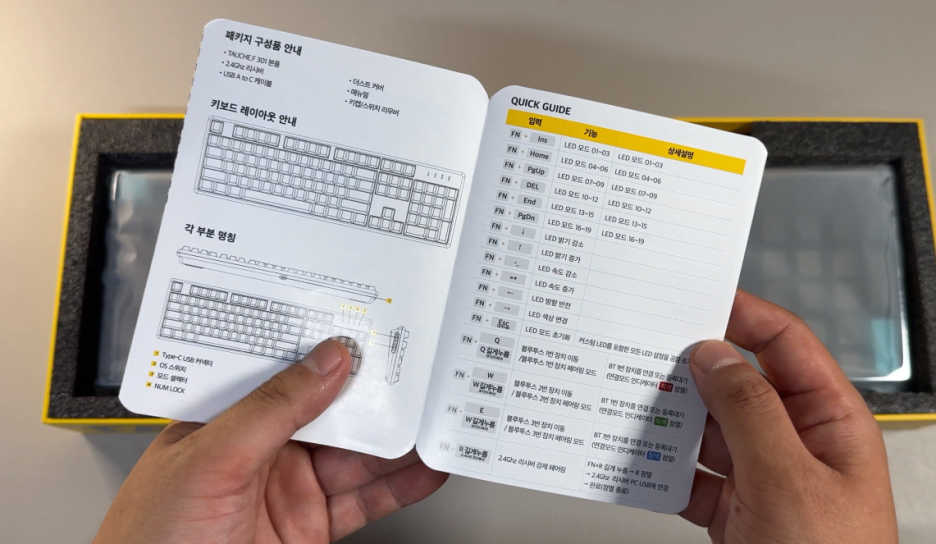 패키지 구성품 안내
• TAUCHE.F 301 본품
• 2.4Ghz 리시버
• USB A to C 케이블
• 더스트 커버
• 매뉴얼
• 키캡/스위치 리무버
키보드 레이아웃 안내
각 부분 명칭
1 Type-C USB 커넥터
2 OS 스위치
3 모드 셀렉터
4 NUM LOCK
QUICK GUIDE
입력 기능 상세설명
FN + Ins LED 모드 01~03 LED 모드 01~03
FN + Home LED 모드 04~06 LED 모드 04~06
FN + PgUp LED 모드 07~09 LED 모드 07~09
FN + DEL LED 모드 10~12 LED 모드 10~12
FN + End LED 모드 13~15 LED 모드 13~15
FN + PgDn LED 모드 16~19 LED 모드 16~19
FN + ↓ LED 밝기 감소
FN + ↑ LED 밝기 증가
FN + -_ LED 속도 감소
FN + =+ LED 속도 증가
FN + ← LED 방향 반전
FN + → LED 색상 변경
FN + Esc LED 모드 초기화 커스텀 LED를 포함한 모든 LED 설정을 공장 초
FN + Q
Q 길게누름
블루투스 1번 장치 이동
/블루투스 1번 장치 페어링 모드
BT 1번 장치를 연결 또는 등록대기
(연결모드 인디케이터 적색 점멸)
FN + W
W 길게누름
블루투스 2번 장치 이동
/ 블루투스 2번 장치 페어링 모드
BT 1번 장치를 연결 또는 등록대기
(연결모드 인디케이터 녹색 점멸)
FN + E
W 길게누름
블루투스 3번 장치 이동
/ 블루투스 3번 장치 페어링 모드
BT 1번 장치를 연결 또는 등록대기
(연결모드 인디케이터 청색 점멸)
FN + R 길게누름
2.4Ghz 리시버 강제 페어링
FN+R 길게 누름 → R 점멸
→ 2.4Ghz 리시버 PC USB에 연결
→ 완료(점멸 종료)